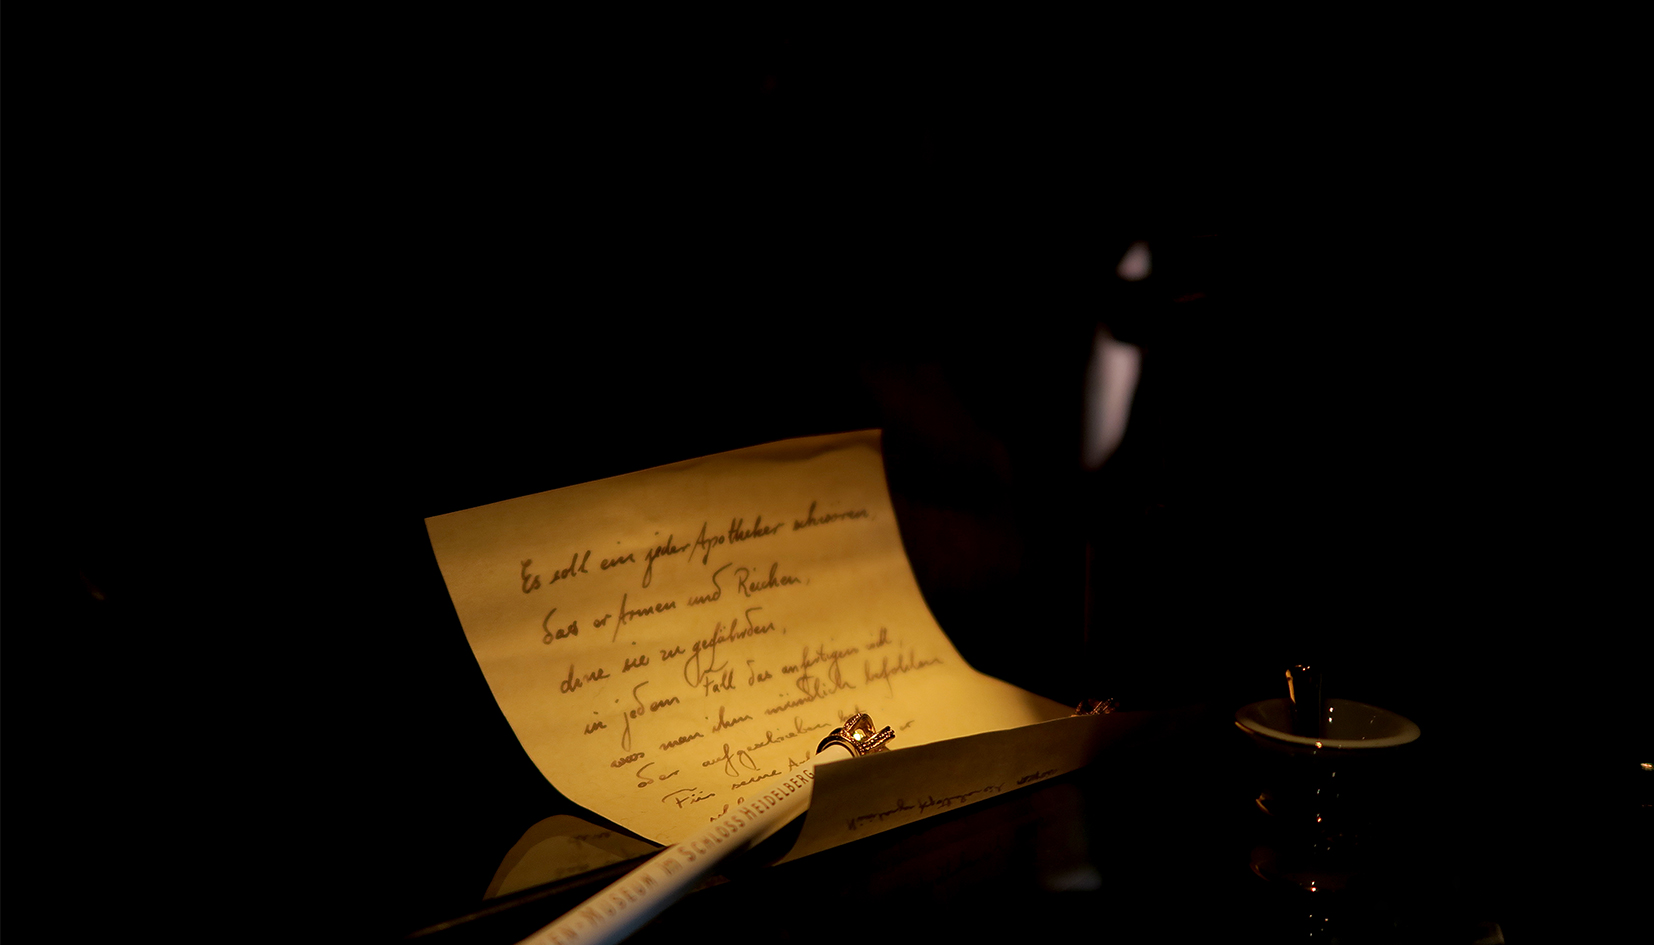 Es soll ein jeder Apotheker schwören,
dass er Armen und Reichen,
ohne sie zu gefährden,
in jedem Fall das anfertigen soll,
was man ihm mündlich befohlen
oder aufgeschrieben hat
Für seine
EN-MUSEUM IM SCHLOSS HEIDELBERG